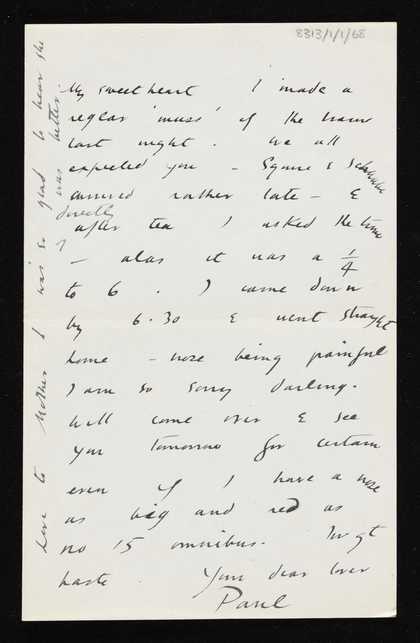 8313/1/1/68
My sweetheart I made a
reglar 'muss' of the train
last night. we all
expected you - Squire & Schwabe
arrived rather late - &
directly
after tea I asked the time
- alas it was a 1/4
to 6. I came down
by 6.30 & went straight
home - nose being painful
I am so sorry darling.
Will come over & see
you tomorrow for certain
even if I have a nose
as big and red as
no 15 omnibus. In gt
haste Your dear lover
Paul
Love to Mother I was so glad to hear she
was better.